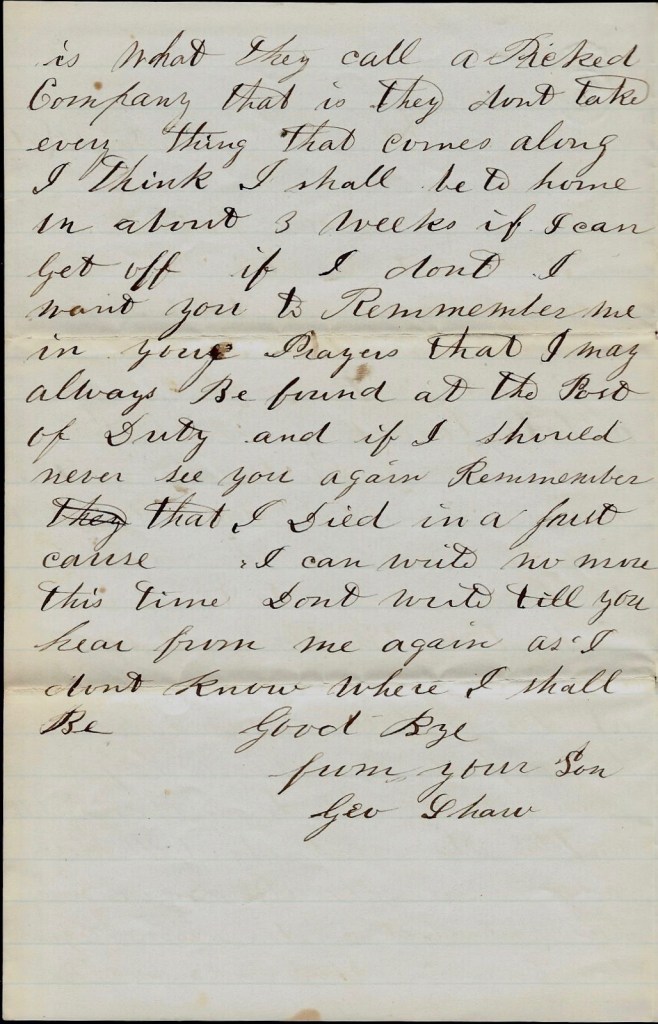 is what they call a Picked
Company that is they dont take
every thing that comes along
I think I shall be to home
in about 3 weeks if I can
get off if I dont I
want you to Remmember me
in your Prayers that I may
always Be found at the Post
of Duty and if I should
never see you again Remmember
they that I Died in a just
cause I can write no more
this time Dont write till you
hear from me again as I
dont know where I shall
Be Good Bye
from your Son
Geo Shaw